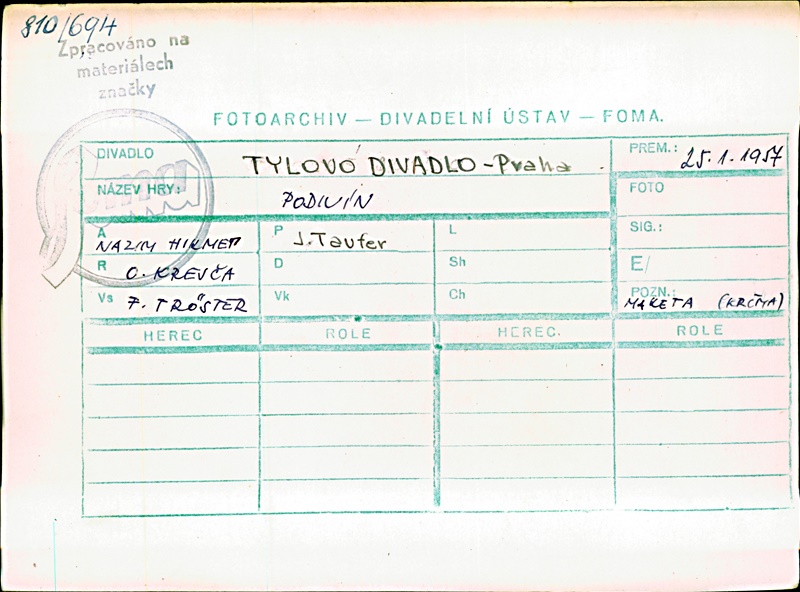 810/694
Zpracováno na
materiálech
značky
Foma
FOTOARCHIV — DIVADELNÍ ÚSTAV — FOMA.
DIVADLO TYLOVO DIVADLO - Praha
PREM.: 25.1.1957
NÁZEV HRY: PODIVÍN
FOTO
A NAZIM HIKMET
P J. Taufer
L
SIG.:
R O. KREJČA
D
Sh
E/
Vs F. TRÖSTER
Vk
Ch
POZN.: MAKETA (KRČMA)
HEREC ROLE HEREC. ROLE